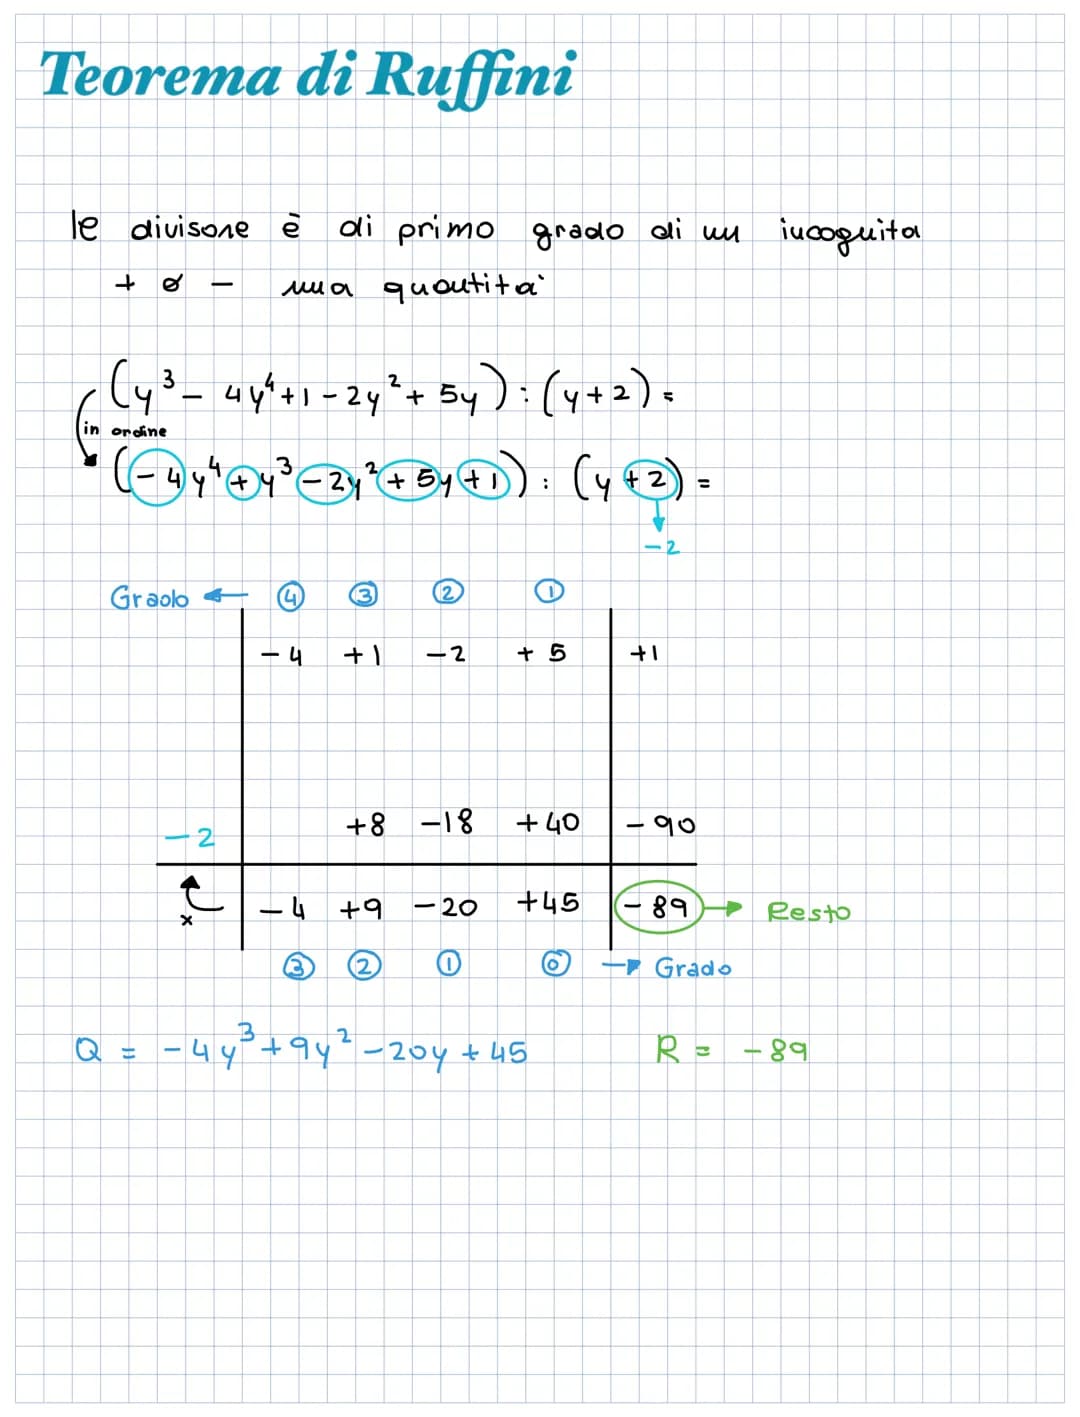 Teorema di Ruffini
le divisone è di primo grado di un incognita
+ o - una quantità
(y³ - 4y⁴ + 1 - 2y² + 5y) : (y + 2) =
in ordine
(-4y⁴ + y³ - 2y² + 5y + 1) : (y + 2) =
-2
Grado ← ④ ③ ② ①
-4 +1 -2 +5 +1
-2 +8 -18 +40 -90
x -4 +9 -20 +45 -89 → Resto
③ ② ① ⓪ → Grado
Q = -4y³ + 9y² - 20y + 45 R = -89